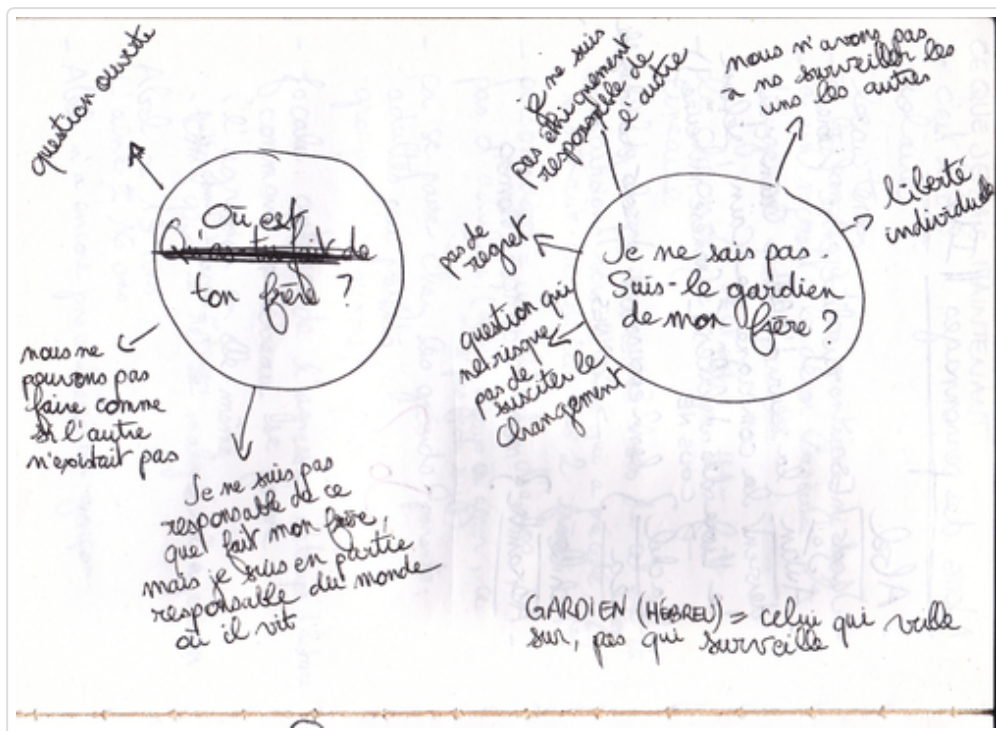 question ouverte
Où est
de
ton frère ?
nous ne
pouvons pas
faire comme
si l'autre
n'existait pas
Je ne suis pas
responsable de ce
que fait mon frère,
mais je suis en partie
responsable du monde
où il vit
je ne suis
pas éthiquement
responsable de
l'autre
nous n'avons pas
à ns surveiller les
uns les autres
liberté
individuelle
pas de
regret
Je ne sais pas.
Suis-le gardien
de mon frère ?
question qui
ne risque
pas de
susciter le
changement
GARDIEN (HÉBREU) = celui qui veille
sur, pas qui surveille